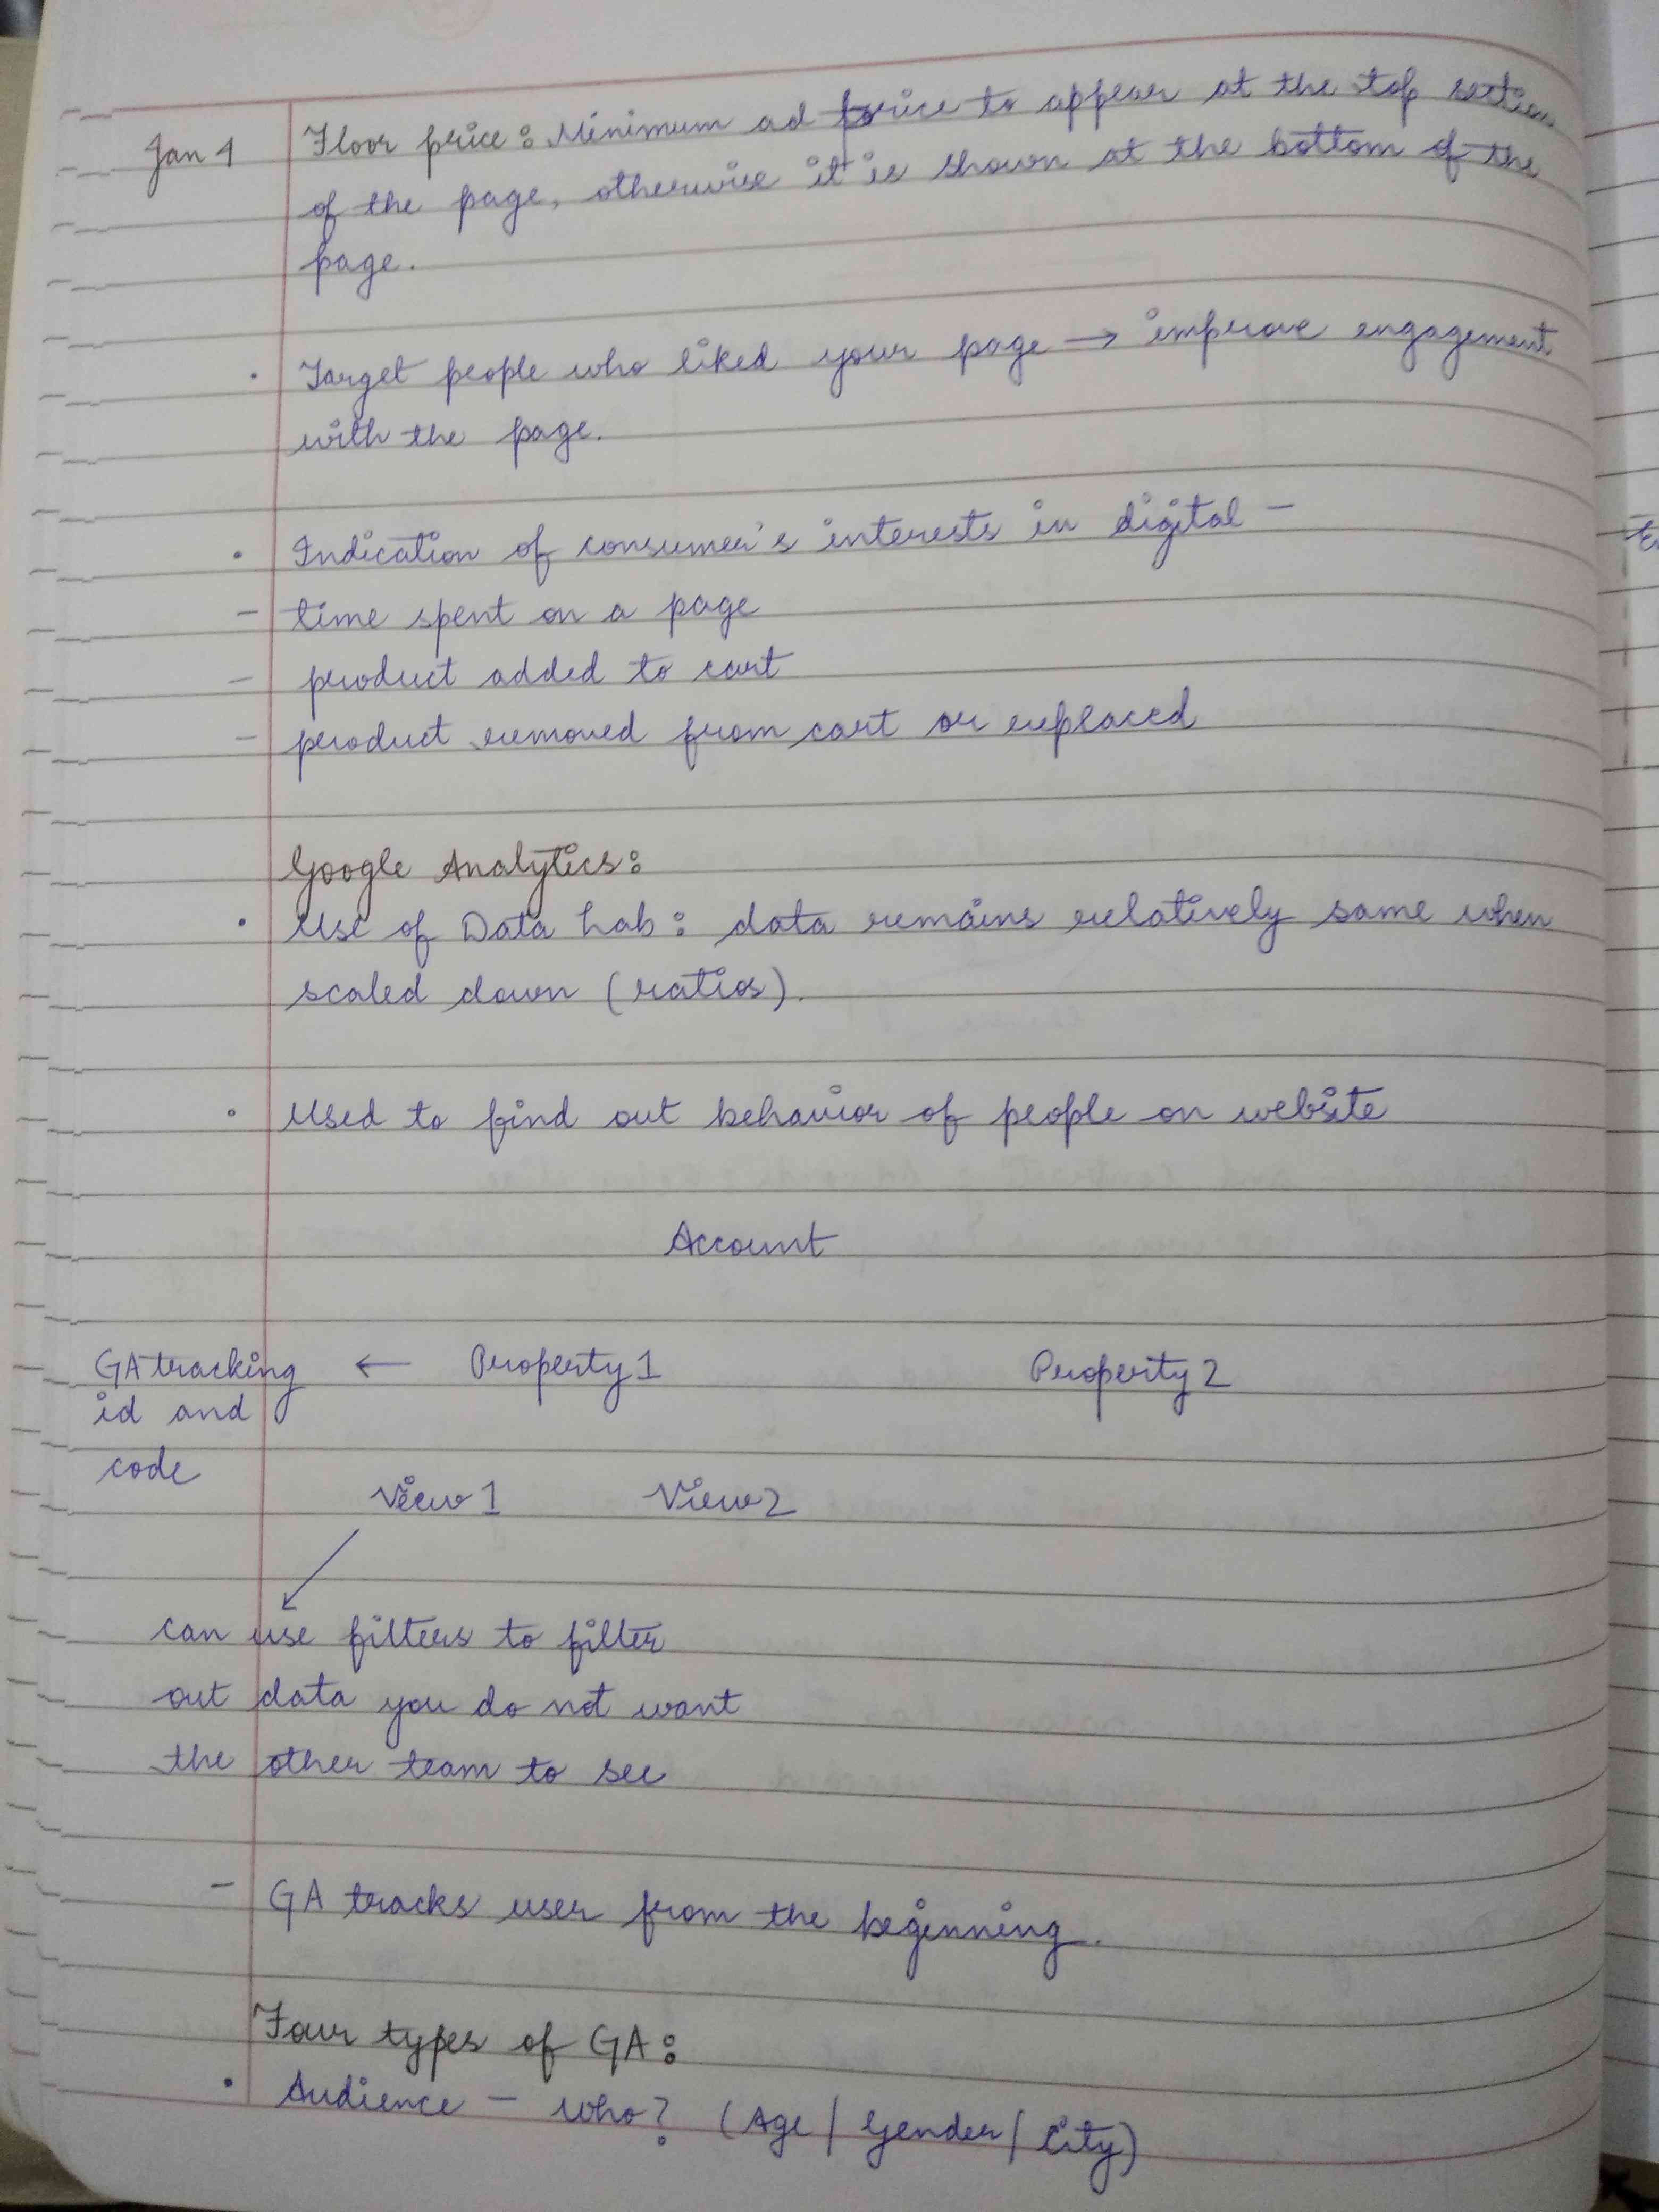 Jan 4 Floor price: Minimum ad price to appear at the top section
of the page, otherwise it is shown at the bottom of the
page.
• Target people who liked your page → improve engagement
with the page.
• Indication of consumer's interests in digital –
– time spent on a page
– product added to cart
– product removed from cart or replaced
Google Analytics:
• Use of Data Lab: data remains relatively same when
scaled down (ratios).
• Used to find out behavior of people on website
Account
GA tracking ← Property 1 Property 2
id and
code
View 1 View 2
can use filters to filter
out data you do not want
the other team to see
– GA tracks user from the beginning.
Four types of GA:
• Audience – who? (Age / Gender / City)